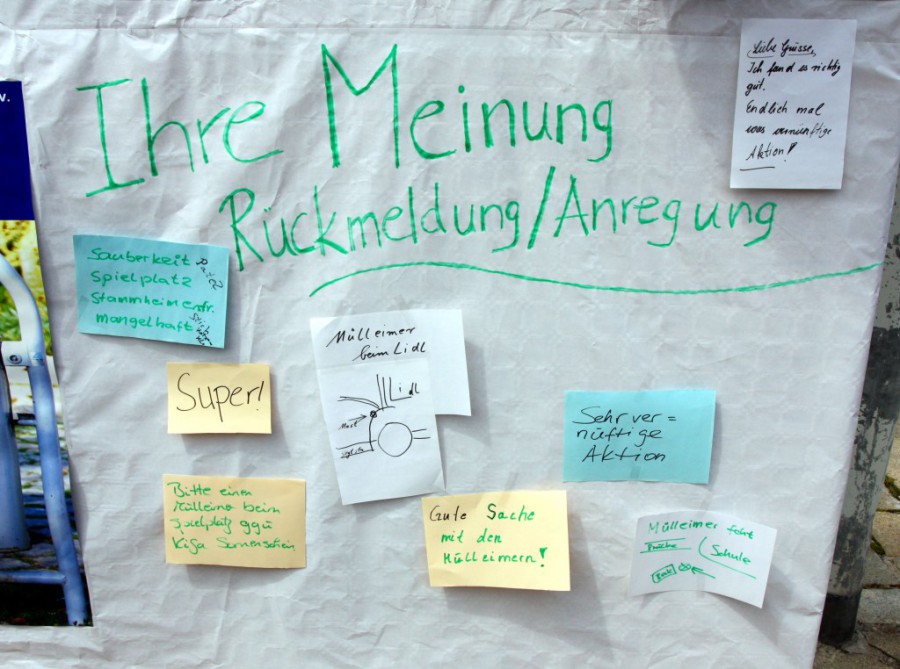 v.
Ihre Meinung
Rückmeldung/Anregung
Liebe Grüsse,
Ich fand es richtig
gut.
Endlich mal
was vernünftige
Aktion!
Sauberkeit
Spielplatz
Stammheimerstr.
mangelhaft
Mülleimer
beim Lidl
Lidl
Super!
Sehr ver=
nüftige
Aktion
Bitte einen
Mülleimer beim
Spielplatz ggü
KiGa Sonnenschein
Gute Sache
mit den
Mülleimern!
Mülleimer fehlt
Brücke
Schule
Bank